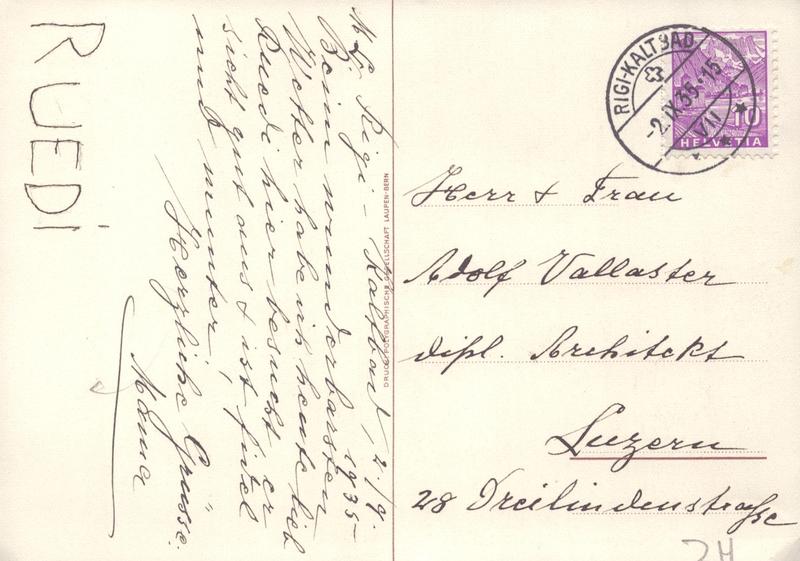 M. L. Rigi-Kaltbad, 2./9.
1935 –
Beim wunderbarsten
Wetter habe ich heute lieb
Ruedi hier besucht er
sieht gut aus & ist fidel
und munter,
Herzliche Grüsse.
Mama
RUEDI
DRUCK: POLYGRAPHISCHE GESELLSCHAFT LAUPEN-BERN
RIGI-KALTBAD
-2.IX.35.-15
VII
10
HELVETIA
Herr & Frau
Adolf Vallaster
dipl. Architekt
Luzern
28 Dreilindenstrasse
2H